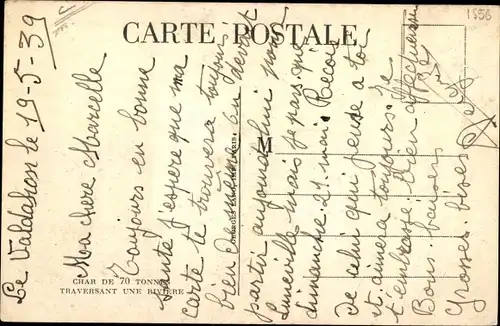 1556
CARTE POSTALE
Le Valdahon le 19-5-39
Ma chere Marcelle
Toujours en bonne
Santé j'espere que ma
carte te trouvera toujour
bien
on devait
partir aujourd'hui pour
Luneville mais je pars que
dimanche 21 mai. Reçois
de celui qui pense a toi
et aimera toujours. Je
t'embrasse bien affectueusem
Bons baisers
Grosses bises
M
CHAR DE 70 TONNES
TRAVERSANT UNE RIVIÈRE